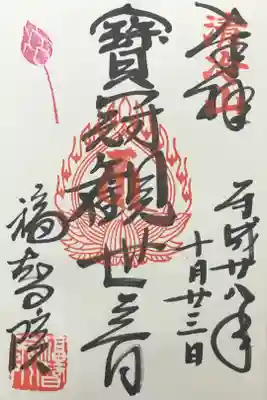 奉拝
平成廿八年
十月廿三日
寶冠観世音
福智院